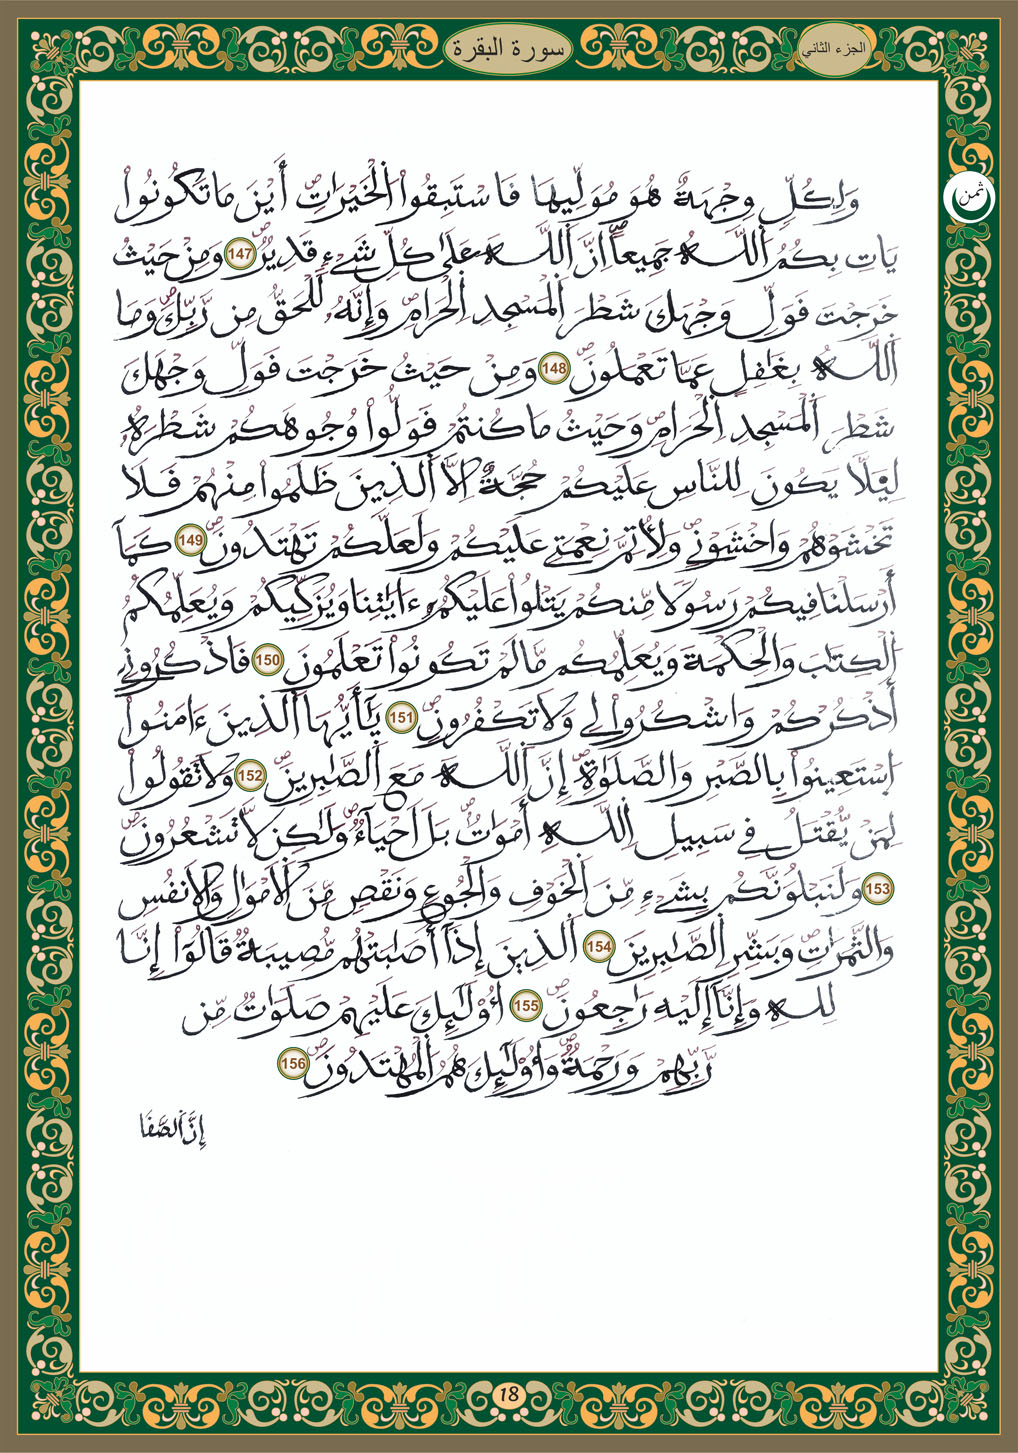 الجزء الثاني
سورة البقرة
ثمن
وَلِكُلّٖ وِجْهَةٌ هُوَ مُوَلِّيهَا فَاسْتَبِقُوا۟ اُ۬لْخَيْرَٰتِۖ أَيْنَ مَا تَكُونُوا۟
يَاتِ بِكُمُ اُ۬للَّهُ جَمِيعاًۖ اِنَّ اَ۬للَّهَ عَلَىٰ كُلِّ شَےْءٖ قَدِيرٞۖ 147 وَمِنْ حَيْثُ
خَرَجْتَ فَوَلِّ وَجْهَكَ شَطْرَ اَ۬لْمَسْجِدِ اِ۬لْحَرَامِۖ وَإِنَّهُۥ لَلْحَقُّ مِن رَّبِّكَۖ وَمَا
اَ۬للَّهُ بِغَٰفِلٍ عَمَّا تَعْمَلُونَۖ 148 وَمِنْ حَيْثُ خَرَجْتَ فَوَلِّ وَجْهَكَ
شَطْرَ اَ۬لْمَسْجِدِ اِ۬لْحَرَامِۖ وَحَيْثُ مَا كُنتُمْ فَوَلُّوا۟ وُجُوهَكُمْ شَطْرَهُۥ
لِيَلَّا يَكُونَ لِلنَّاسِ عَلَيْكُمْ حُجَّةٌ اِلَّا اَ۬لذِينَ ظَلَمُوا۟ مِنْهُمْ فَلَا
تَخْشَوْهُمْ وَاخْشَوْنِےۖ وَلِأُتِمَّ نِعْمَتِے عَلَيْكُمْ وَلَعَلَّكُمْ تَهْتَدُونَۖ 149 كَمَآ
أَرْسَلْنَا فِيكُمْ رَسُولاٗ مِّنكُمْ يَتْلُوا۟ عَلَيْكُمُۥٓ ءَايَٰتِنَا وَيُزَكِّيكُمْ وَيُعَلِّمُكُمُ
اُ۬لْكِتَٰبَ وَالْحِكْمَةَ وَيُعَلِّمُكُم مَّا لَمْ تَكُونُوا۟ تَعْلَمُونَۖ 150 فَاذْكُرُونِےٓ
أَذْكُرْكُمْ وَاشْكُرُوا۟ لِے وَلَا تَكْفُرُونِۖ 151 يَٰٓأَيُّهَا اَ۬لذِينَ ءَامَنُوا۟
اُ۪سْتَعِينُوا۟ بِالصَّبْرِ وَالصَّلَوٰةِۖ إِنَّ اَ۬للَّهَ مَعَ اَ۬لصَّٰبِرِينَۖ 152 وَلَا تَقُولُوا۟
لِمَنْ يُّقْتَلُ فِے سَبِيلِ اِ۬للَّهِ أَمْوَٰتُۢۖ بَلَ اَحْيَآءٞ وَلَٰكِن لَّا تَشْعُرُونَۖ
153 وَلَنَبْلُوَنَّكُم بِشَےْءٖ مِّنَ اَ۬لْخَوْفِ وَالْجُوعِ وَنَقْصٖ مِّنَ اَ۬لَامْوَٰلِ وَالَانفُسِ
وَالثَّمَرَٰتِۖ وَبَشِّرِ اِ۬لصَّٰبِرِينَ 154 اَ۬لذِينَ إِذَآ أَصَٰبَتْهُم مُّصِيبَةٞ قَالُوٓا۟ إِنَّا
لِلهِ وَإِنَّآ إِلَيْهِ رَٰجِعُونَۖ 155 أُو۟لَٰٓئِكَ عَلَيْهِمْ صَلَوَٰتٞ مِّن
رَّبِّهِمْ وَرَحْمَةٞۖ وَأُو۟لَٰٓئِكَ هُمُ اُ۬لْمُهْتَدُونَۖ 156
إِنَّ اَ۬لصَّفَا
18